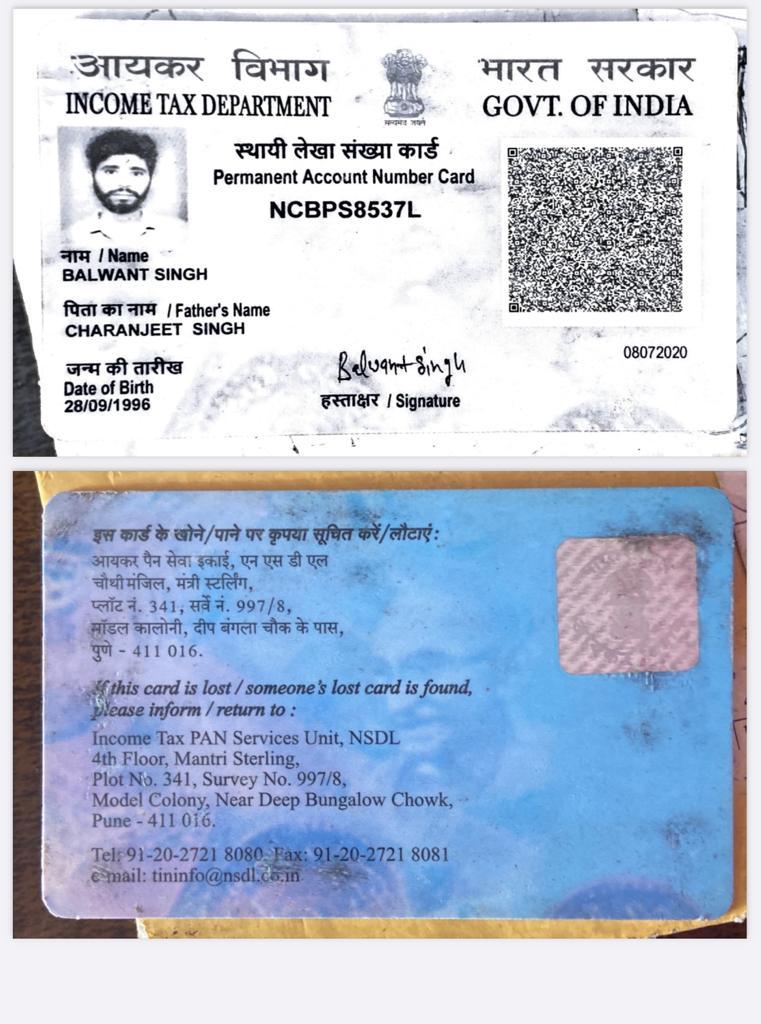 आयकर विभाग
INCOME TAX DEPARTMENT
सत्यमेव जयते
भारत सरकार
GOVT. OF INDIA
स्थायी लेखा संख्या कार्ड
Permanent Account Number Card
NCBPS8537L
नाम / Name
BALWANT SINGH
पिता का नाम / Father's Name
CHARANJEET SINGH
जन्म की तारीख
Date of Birth
28/09/1996
Balvant Singh
हस्ताक्षर / Signature
08072020
इस कार्ड के खोने/पाने पर कृपया सूचित करें/लौटाएं:
आयकर पैन सेवा इकाई, एन एस डी एल
चौथी मंजिल, मंत्री स्टर्लिंग,
प्लॉट नं. 341, सर्वे नं. 997/8,
मॉडल कालोनी, दीप बंगला चौक के पास,
पुणे - 411 016.
If this card is lost / someone's lost card is found,
please inform / return to :
Income Tax PAN Services Unit, NSDL
4th Floor, Mantri Sterling,
Plot No. 341, Survey No. 997/8,
Model Colony, Near Deep Bungalow Chowk,
Pune - 411 016.
Tel: 91-20-2721 8080, Fax: 91-20-2721 8081
e-mail: tininfo@nsdl.co.in